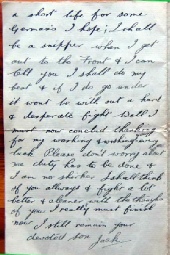 a short life for some
Germans I hope; I shall
be a snipper when I get
out to the Front & I can
tell you I shall do my
best & if I do go under
it wont be with out a hard
& desperate fight Well I
must now conclud thanking
for my washing & wishing
luck Please don't worry about
me duty has to be done &
I am no shirker I shall think
of you always & fight a lot
better & cleaner with the thoughts
of you I really must finish
now I still remain your
devoted son Jack